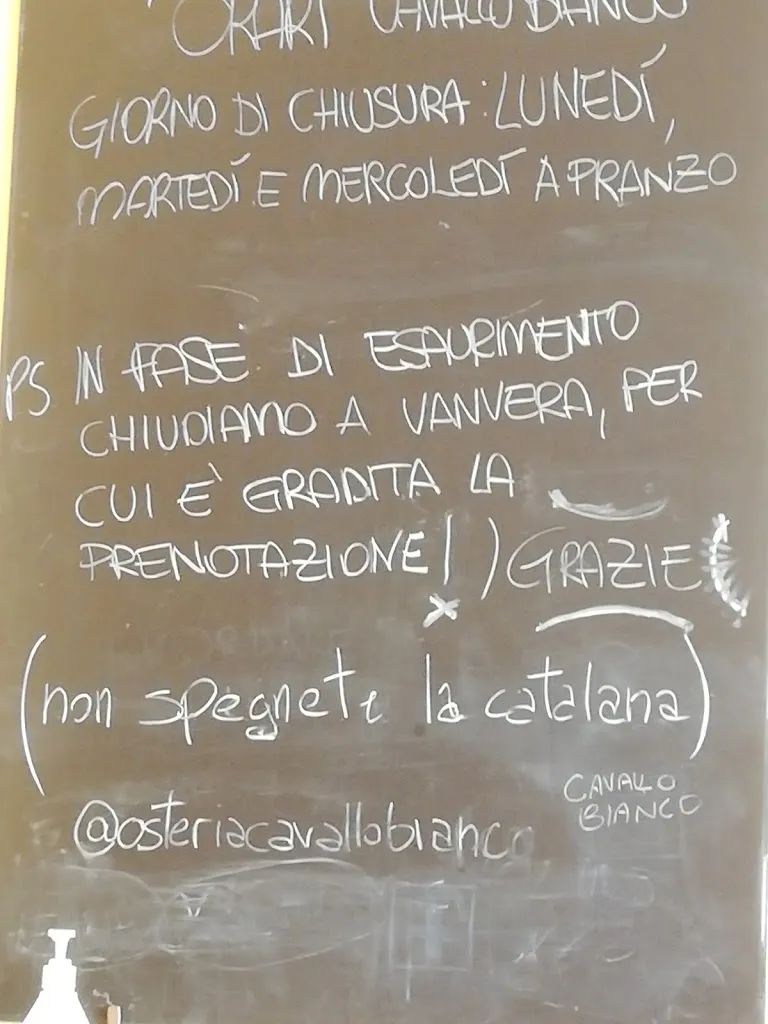 ORARI CAVALLO BIANCO
GIORNO DI CHIUSURA: LUNEDÍ,
MARTEDÍ E MERCOLEDÍ A PRANZO
PS IN FASE DI ESAURIMENTO
CHIUDIAMO A VANVERA, PER
CUI E' GRADITA LA
PRENOTAZIONE! ) GRAZIE
(non spegnete la catalana)
CAVALLO
BIANCO
@osteriacavallobianco